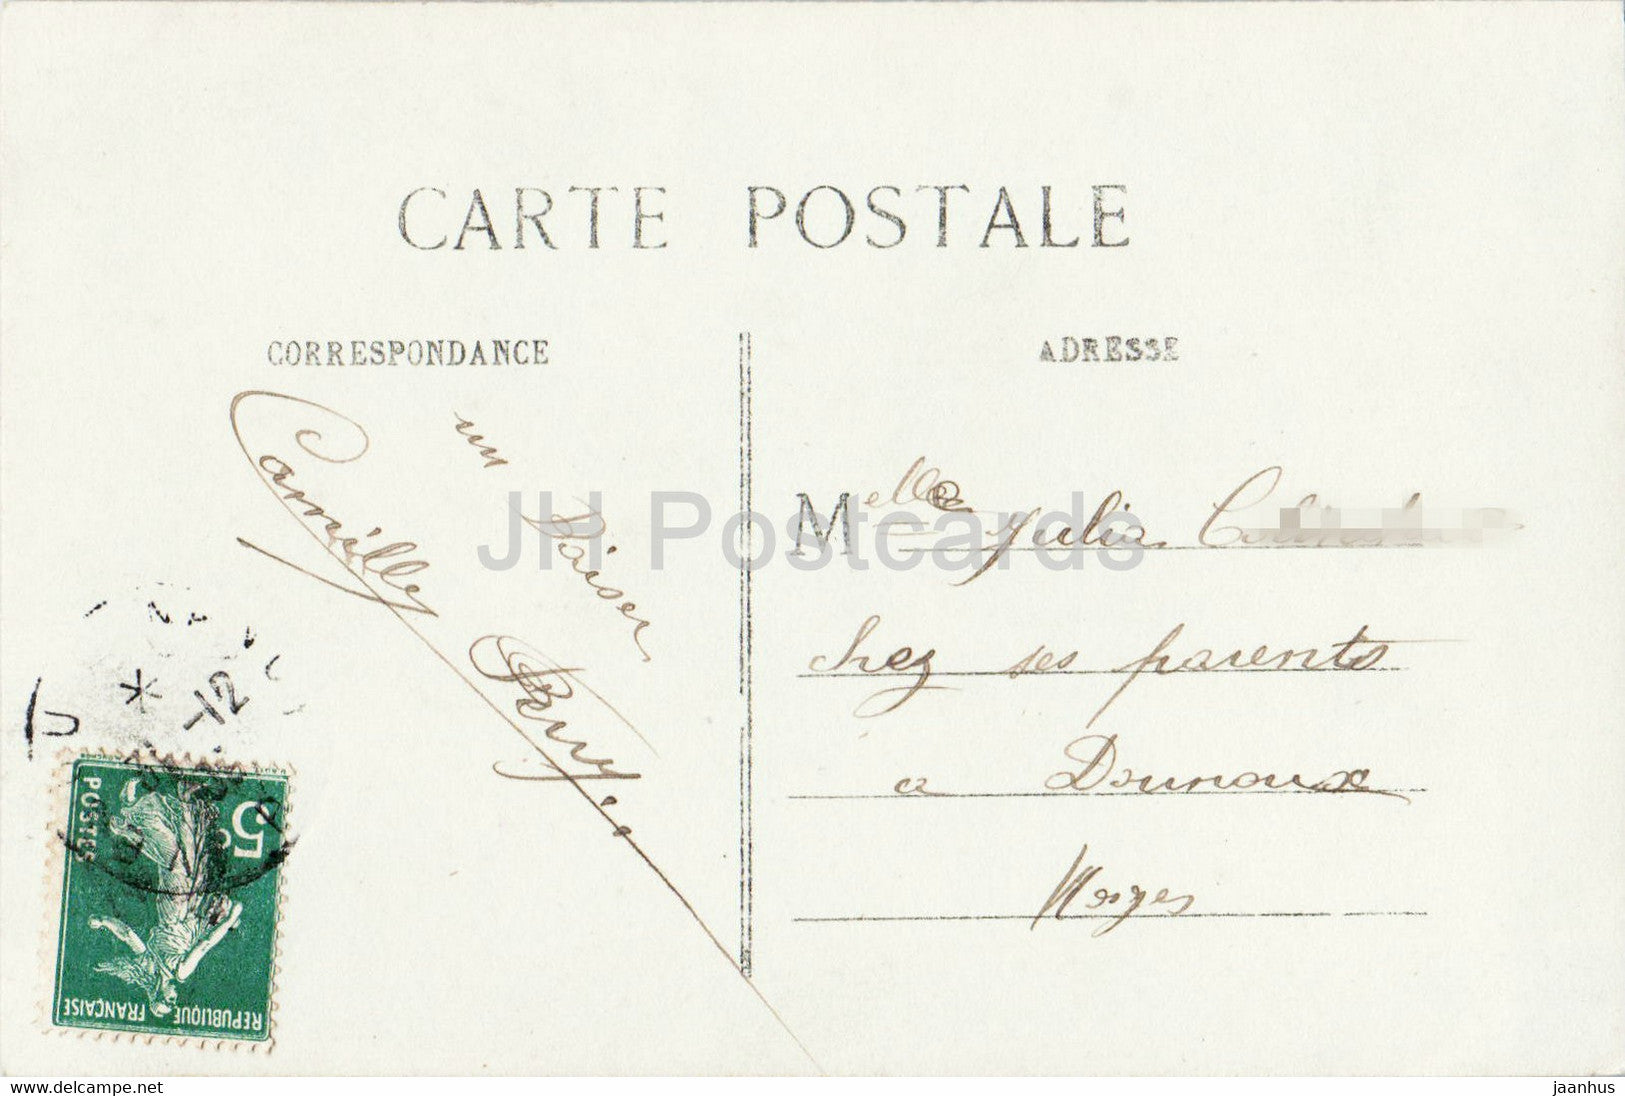 CARTE POSTALE
CORRESPONDANCE
ADRESSE
un Baiser
Camille
Melle Julia
chez ses parents
a Dounoux
Vosges
JH Postcards
12
5c
POSTES
REPUBLIQUE FRANÇAISE
www.delcampe.net
jaanhus